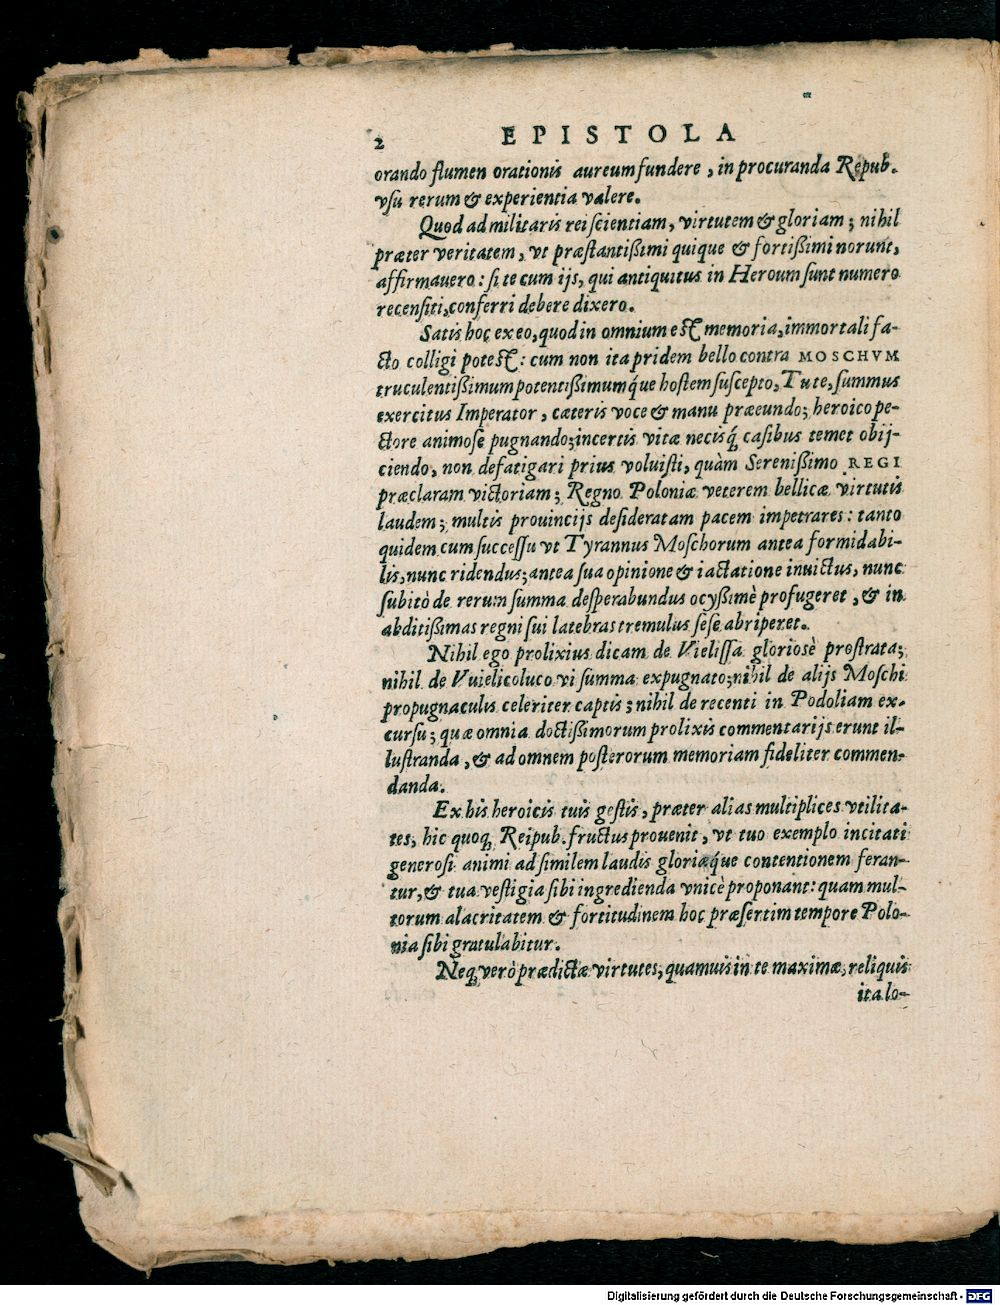 2 EPISTOLA
orando flumen orationis aureum fundere, in procuranda Repub.
vsu rerum & experientia valere.
Quod ad militaris rei scientiam, virtutem & gloriam; nihil
præter veritatem, vt præstantißimi quique & fortißimi norunt,
affirmauero: si te cum ijs, qui antiquitus in Heroum sunt numero
recensiti, conferri debere dixero.
Satis hoc ex eo, quod in omnium est memoria, immortali fa-
cto colligi potest: cum non ita pridem bello contra MOSCHVM
truculentißimum potentißimumq́ue hostem suscepto, Tute, summus
exercitus Imperator, cæteris voce & manu præeundo; heroico pe-
ctore animose pugnando; incertis vitæ necisq́ casibus temet obij-
ciendo, non defatigari prius voluisti, quàm Serenißimo REGI
præclaram victoriam; Regno Poloniæ veterem bellicæ virtutis
laudem; multis prouincijs desideratam pacem impetrares: tanto
quidem cum successu vt Tyrannus Moschorum antea formidabi-
lis, nunc ridendus; antea sua opinione & iactatione inuictus, nunc
subitò de rerum summa desperabundus ocyßimè profugeret, & in
abditißimas regni sui latebras tremulus sese abriperet.
Nihil ego prolixius dicam de Vielissa gloriosè prostrata;
nihil de Vuielicoluco vi summa expugnato; nihil de alijs Moschi
propugnaculis celeriter captis; nihil de recenti in Podoliam ex-
cursu; quæ omnia doctißimorum prolixis commentarijs erunt il-
lustranda, & ad omnem posterorum memoriam fideliter commen-
danda.
Ex his heroicis tuis gestis, præter alias multiplices vtilita-
tes, hic quoq; Reipub. fructus prouenit, vt tuo exemplo incitati
generosi animi ad similem laudis gloriæq́ue contentionem feran-
tur, & tua vestigia sibi ingredienda vnicè proponant: quam mul-
torum alacritatem & fortitudinem hoc præsertim tempore Polo-
nia sibi gratulabitur.
Neq; verò prædictæ virtutes, quamuis in te maximæ, reliquis
ita lo-
Digitalisierung gefördert durch die Deutsche Forschungsgemeinschaft - DFG